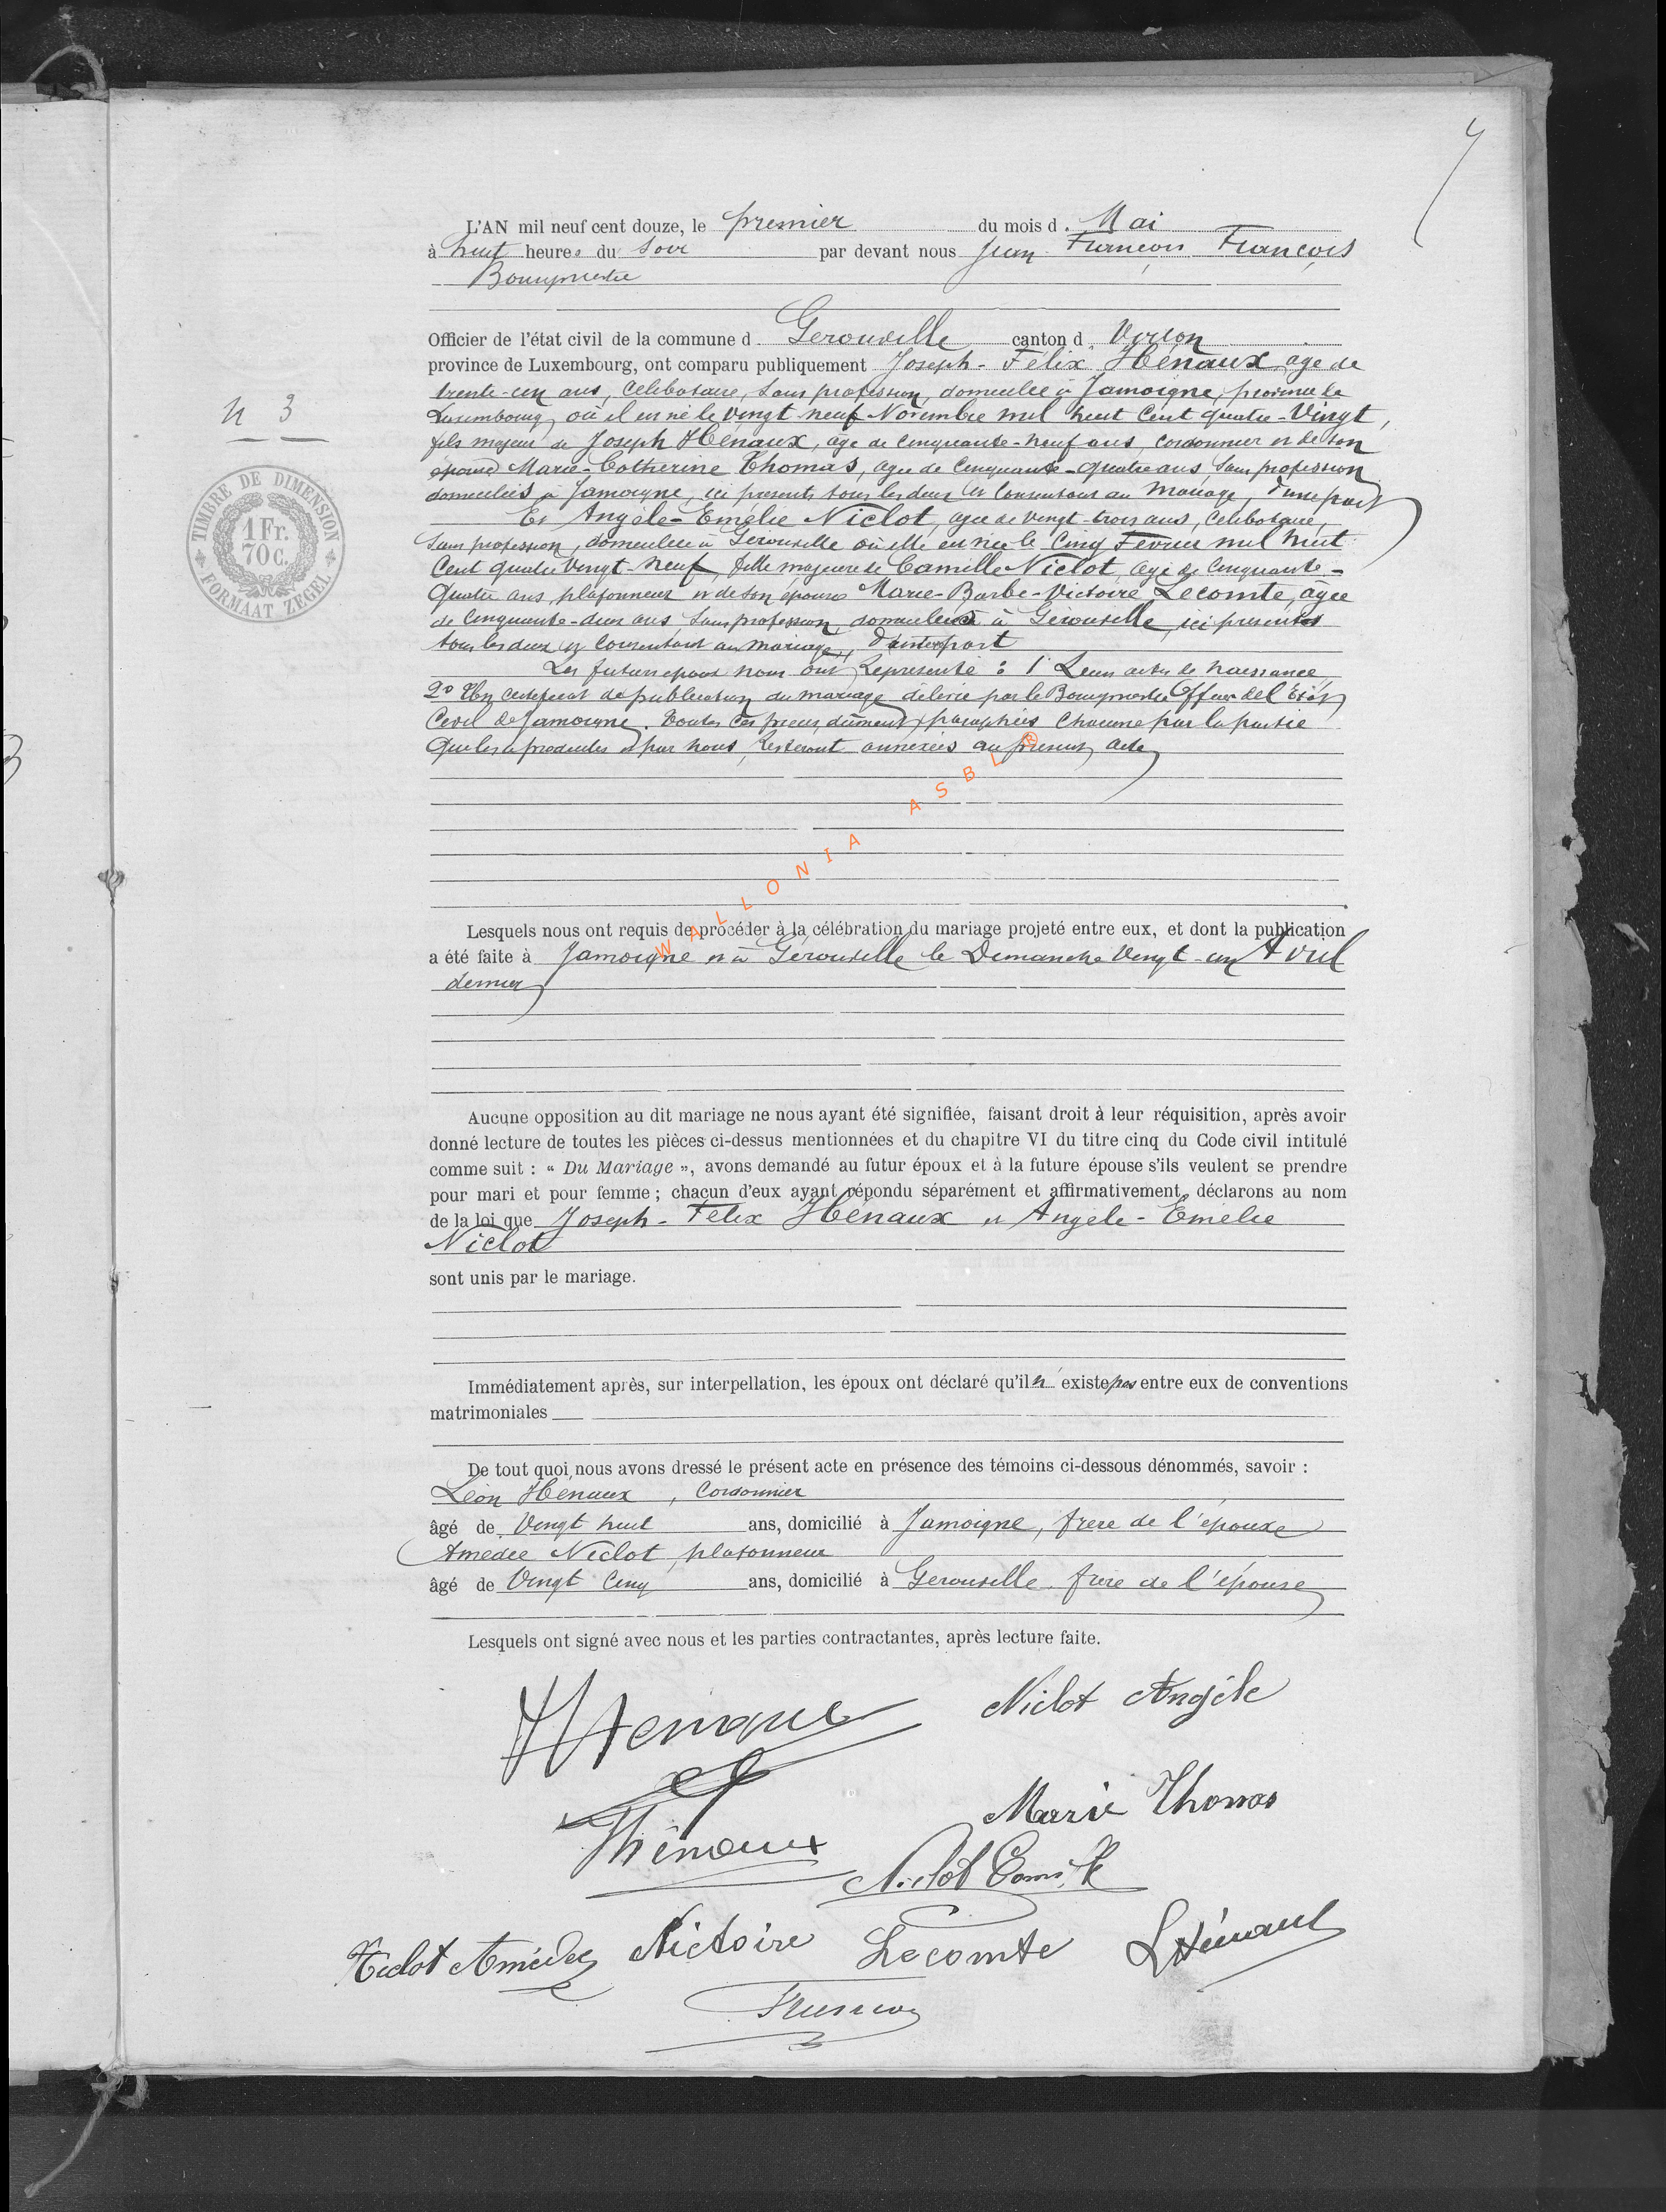 4
L'AN mil neuf cent douze, le premier du mois d. Mai
à huit heures du soir par devant nous Jean François François
Bourgmestre
Officier de l'état civil de la commune d Gérouville canton d. Virton
province de Luxembourg, ont comparu publiquement Joseph-Félix Hénaux agé de
trente-un ans, célibataire, sans profession, domicilié à Jamoigne, province de
Luxembourg, où il est né le vingt neuf Novembre mil huit cent quatre-Vingt,
n 3
fils majeur de Joseph Hénaux, âgé de cinquante-neuf ans, cordonnier et de son
épouse Marie-Catherine Thomas, agée de cinquante-quatre ans, sans profession
domiciliés à Jamoigne, ici présents tous les deux et consentant au mariage, d'une part
Et Angèle-Emélie Niclot, agée de vingt-trois ans, célibataire,
sans profession, domiciliée à Gérouville où elle est née le cinq Février mil huit
cent quatre vingt-neuf, fille majeure de Camille Niclot, agé de cinquante-
quatre ans, plafonneur et de son épouse Marie-Barbe-Victoire Lecomte, âgée
de cinquante-deux ans, sans profession, domiciliés à Gérouville, ici présents
tous les deux et consentant au mariage, d'autre part
Les futurs époux nous ont représenté : 1° Leurs actes de naissance,
2° Un certificat de publication du mariage délivré par le Bourgmestre Officier de l'Etat
Civil de Jamoigne. Toutes ces pièces, dûment paraphées chacune par la partie
qui les a produites et par nous, resteront annexées au présent acte
TIMBRE DE DIMENSION
1 Fr.
70 c.
FORMAAT ZEGEL
WALLONIA ASBL ®
Lesquels nous ont requis de procéder à la célébration du mariage projeté entre eux, et dont la publication
a été faite à Jamoigne et à Gérouville le Dimanche Vingt-un Avril
dernier
Aucune opposition au dit mariage ne nous ayant été signifiée, faisant droit à leur réquisition, après avoir
donné lecture de toutes les pièces ci-dessus mentionnées et du chapitre VI du titre cinq du Code civil intitulé
comme suit : « Du Mariage », avons demandé au futur époux et à la future épouse s'ils veulent se prendre
pour mari et pour femme ; chacun d'eux ayant répondu séparément et affirmativement, déclarons au nom
de la loi que Joseph-Félix Hénaux et Angèle-Emélie
Niclot
sont unis par le mariage.
Immédiatement après, sur interpellation, les époux ont déclaré qu'il n'existe pas entre eux de conventions
matrimoniales
De tout quoi nous avons dressé le présent acte en présence des témoins ci-dessous dénommés, savoir :
Léon Hénaux, Cordonnier
âgé de Vingt huit ans, domicilié à Jamoigne, frère de l'époux
Amédée Niclot, plafonneur
âgé de Vingt Cinq ans, domicilié à Gérouville frère de l'épouse
Lesquels ont signé avec nous et les parties contractantes, après lecture faite.
Niclot Angèle
Marie Thomas
JHénaux
Niclot Camille
Niclot Amédée Victoire Lecomte LHénaux
François